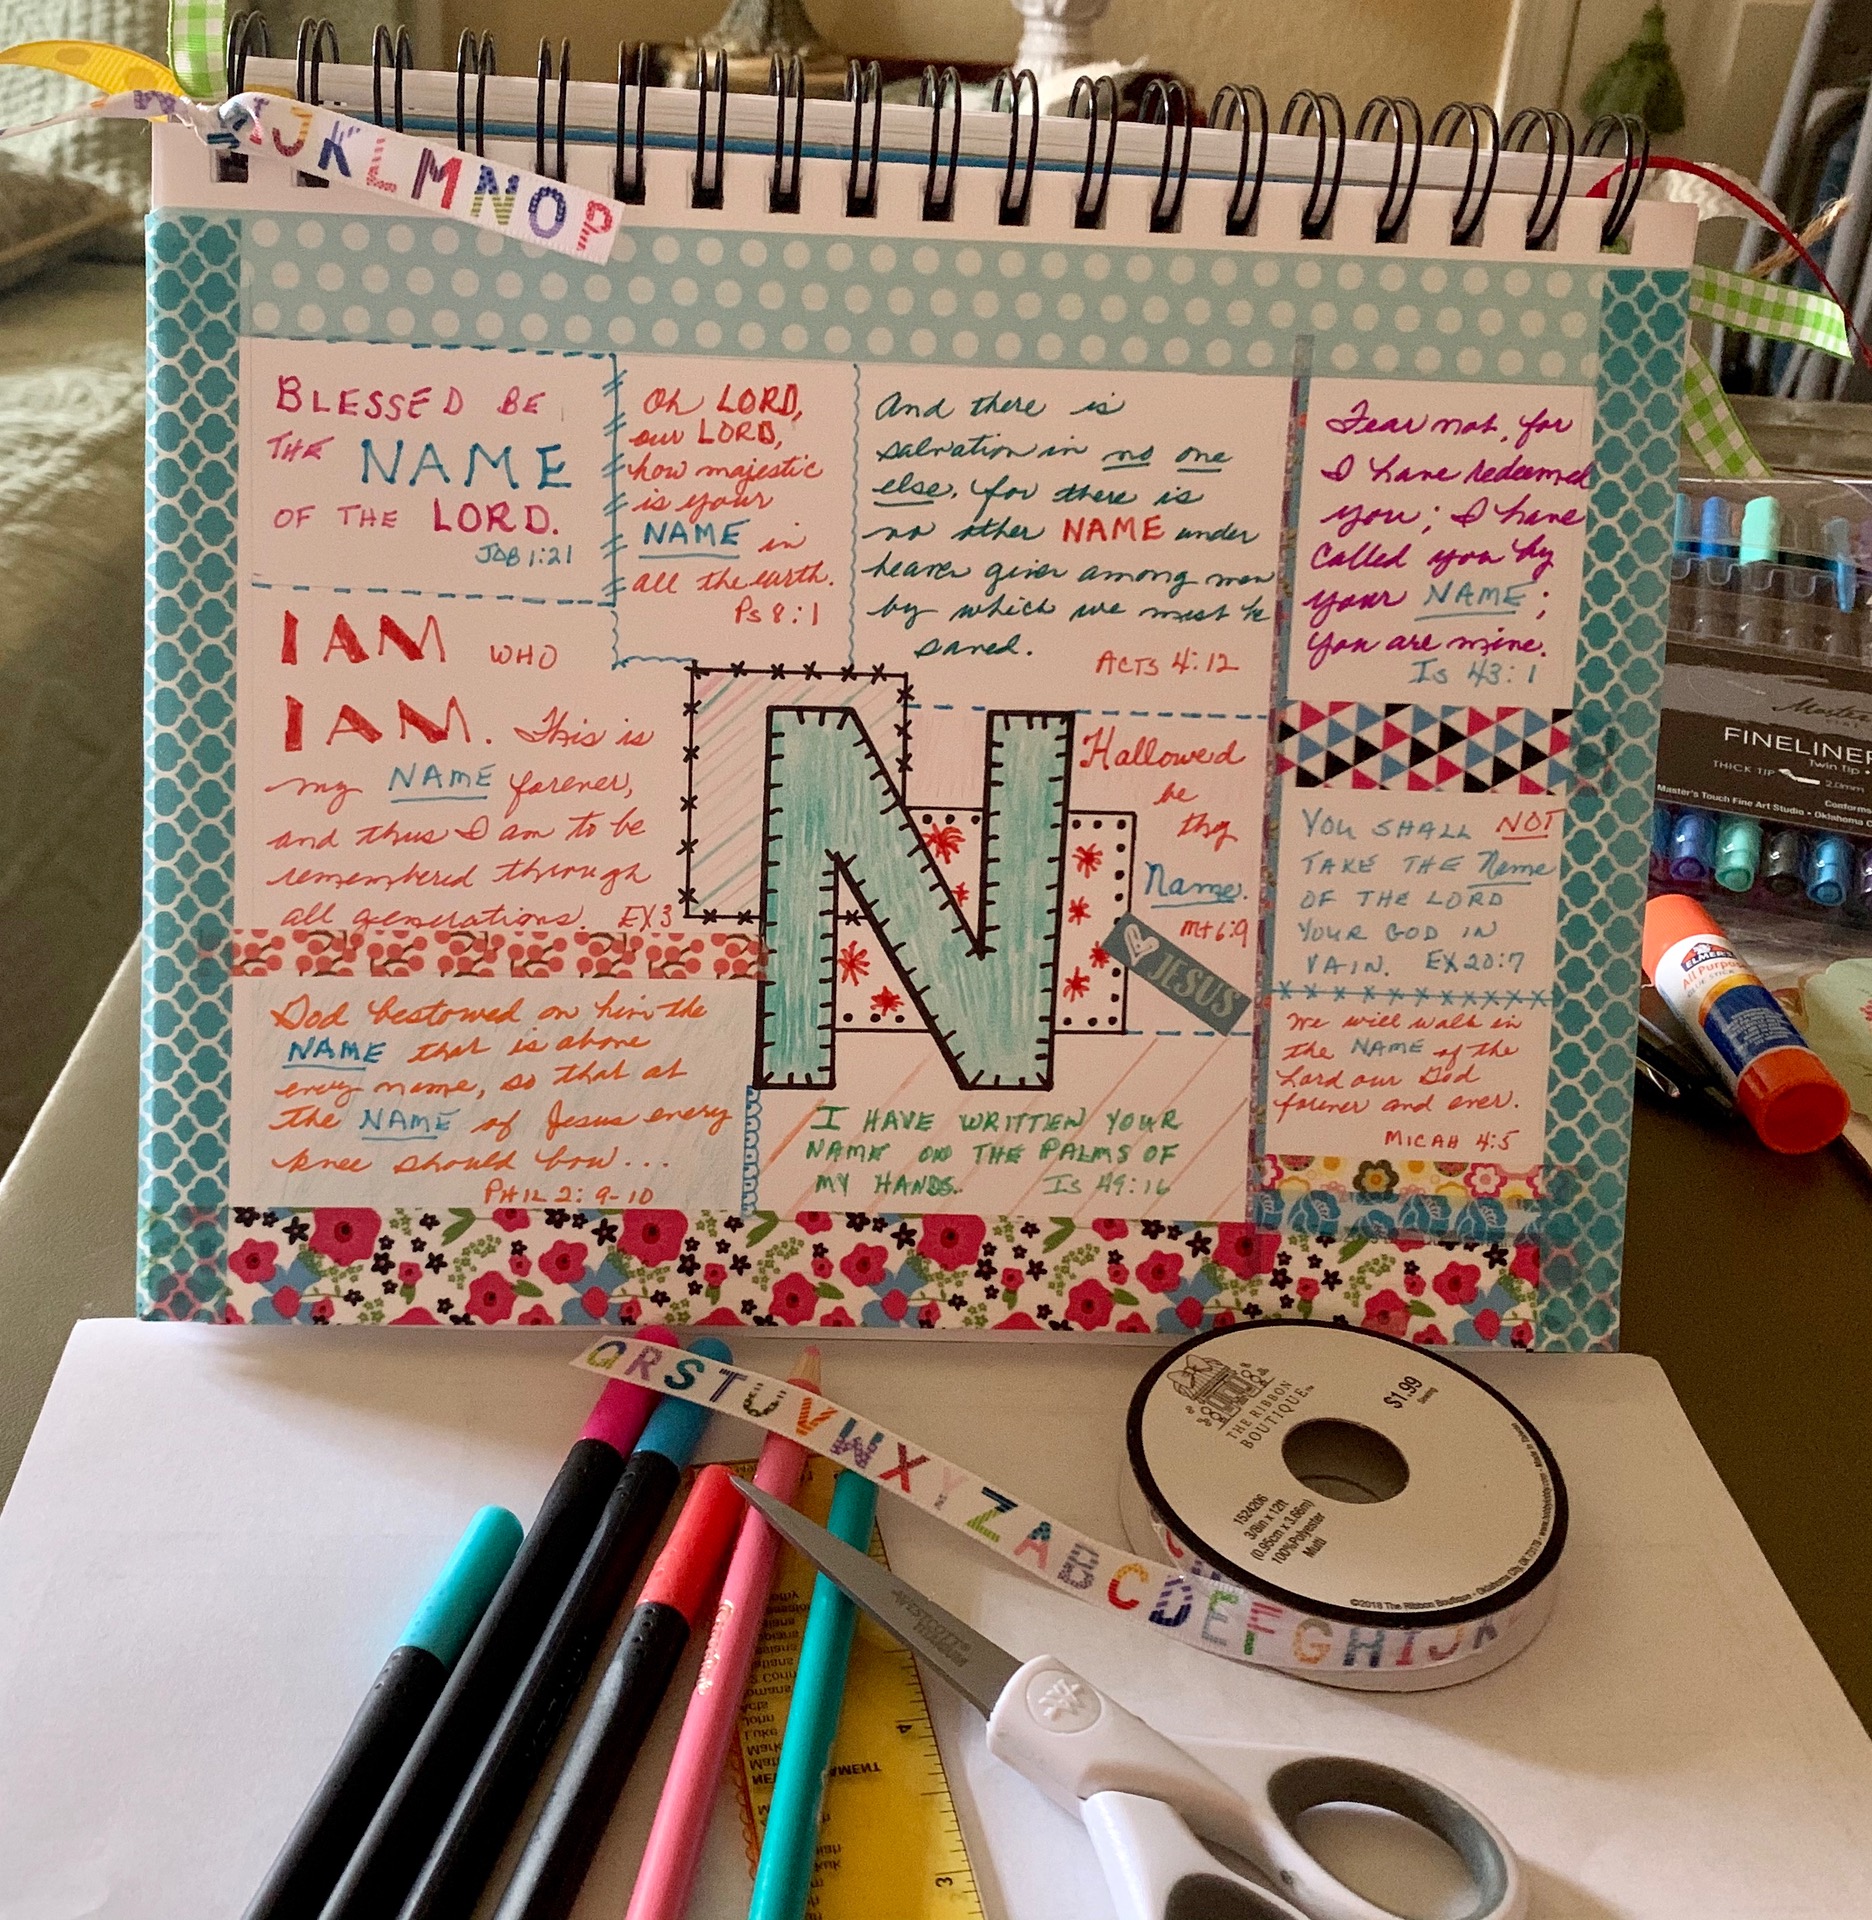 IJKLMNOP
BLESSED BE
THE NAME
OF THE LORD.
JOB 1:21
Oh LORD,
our LORD,
how majestic
is your
NAME in
all the earth.
Ps 8:1
And there is
salvation in no one
else, for there is
no other NAME under
heaven given among men
by which we must be
saved.
ACTS 4:12
Fear not, for
I have redeemed
you; I have
called you by
your NAME;
you are mine.
Is 43:1
I AM WHO
I AM. This is
my NAME forever,
and thus I am to be
remembered through
all generations. EX3
N
Hallowed
be
thy
Name.
Mt 6:9
JESUS
YOU SHALL NOT
TAKE THE Name
OF THE LORD
YOUR GOD IN
VAIN. EX 20:7
We will walk in
the NAME of the
Lord our God
forever and ever.
MICAH 4:5
God bestowed on him the
NAME that is above
every name, so that at
the NAME of Jesus every
knee should bow...
PHIL 2:9-10
I HAVE WRITTEN YOUR
NAME ON THE PALMS OF
MY HANDS. Is 49:16
FINELINER
THICK TIP 2.0mm
Twin Tip
Master's Touch Fine Art Studio • Oklahoma C
ELMER'S
All Purpose
QRSTUVWXYZABCDEFGHIJK
THE RIBBON
BOUTIQUE
$1.99
1524206
3/8in x 12ft
(0.95cm x 3.66m)
100% Polyester
Multi
©2018 The Ribbon Boutique
WESTCOTT
Acts
John
Luke
Mark
4
3